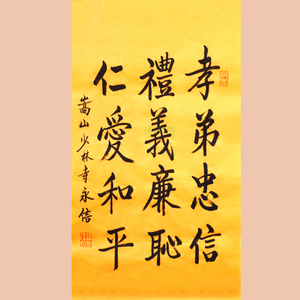 孝弟忠信
禮義廉恥
仁愛和平
嵩山少林寺永信